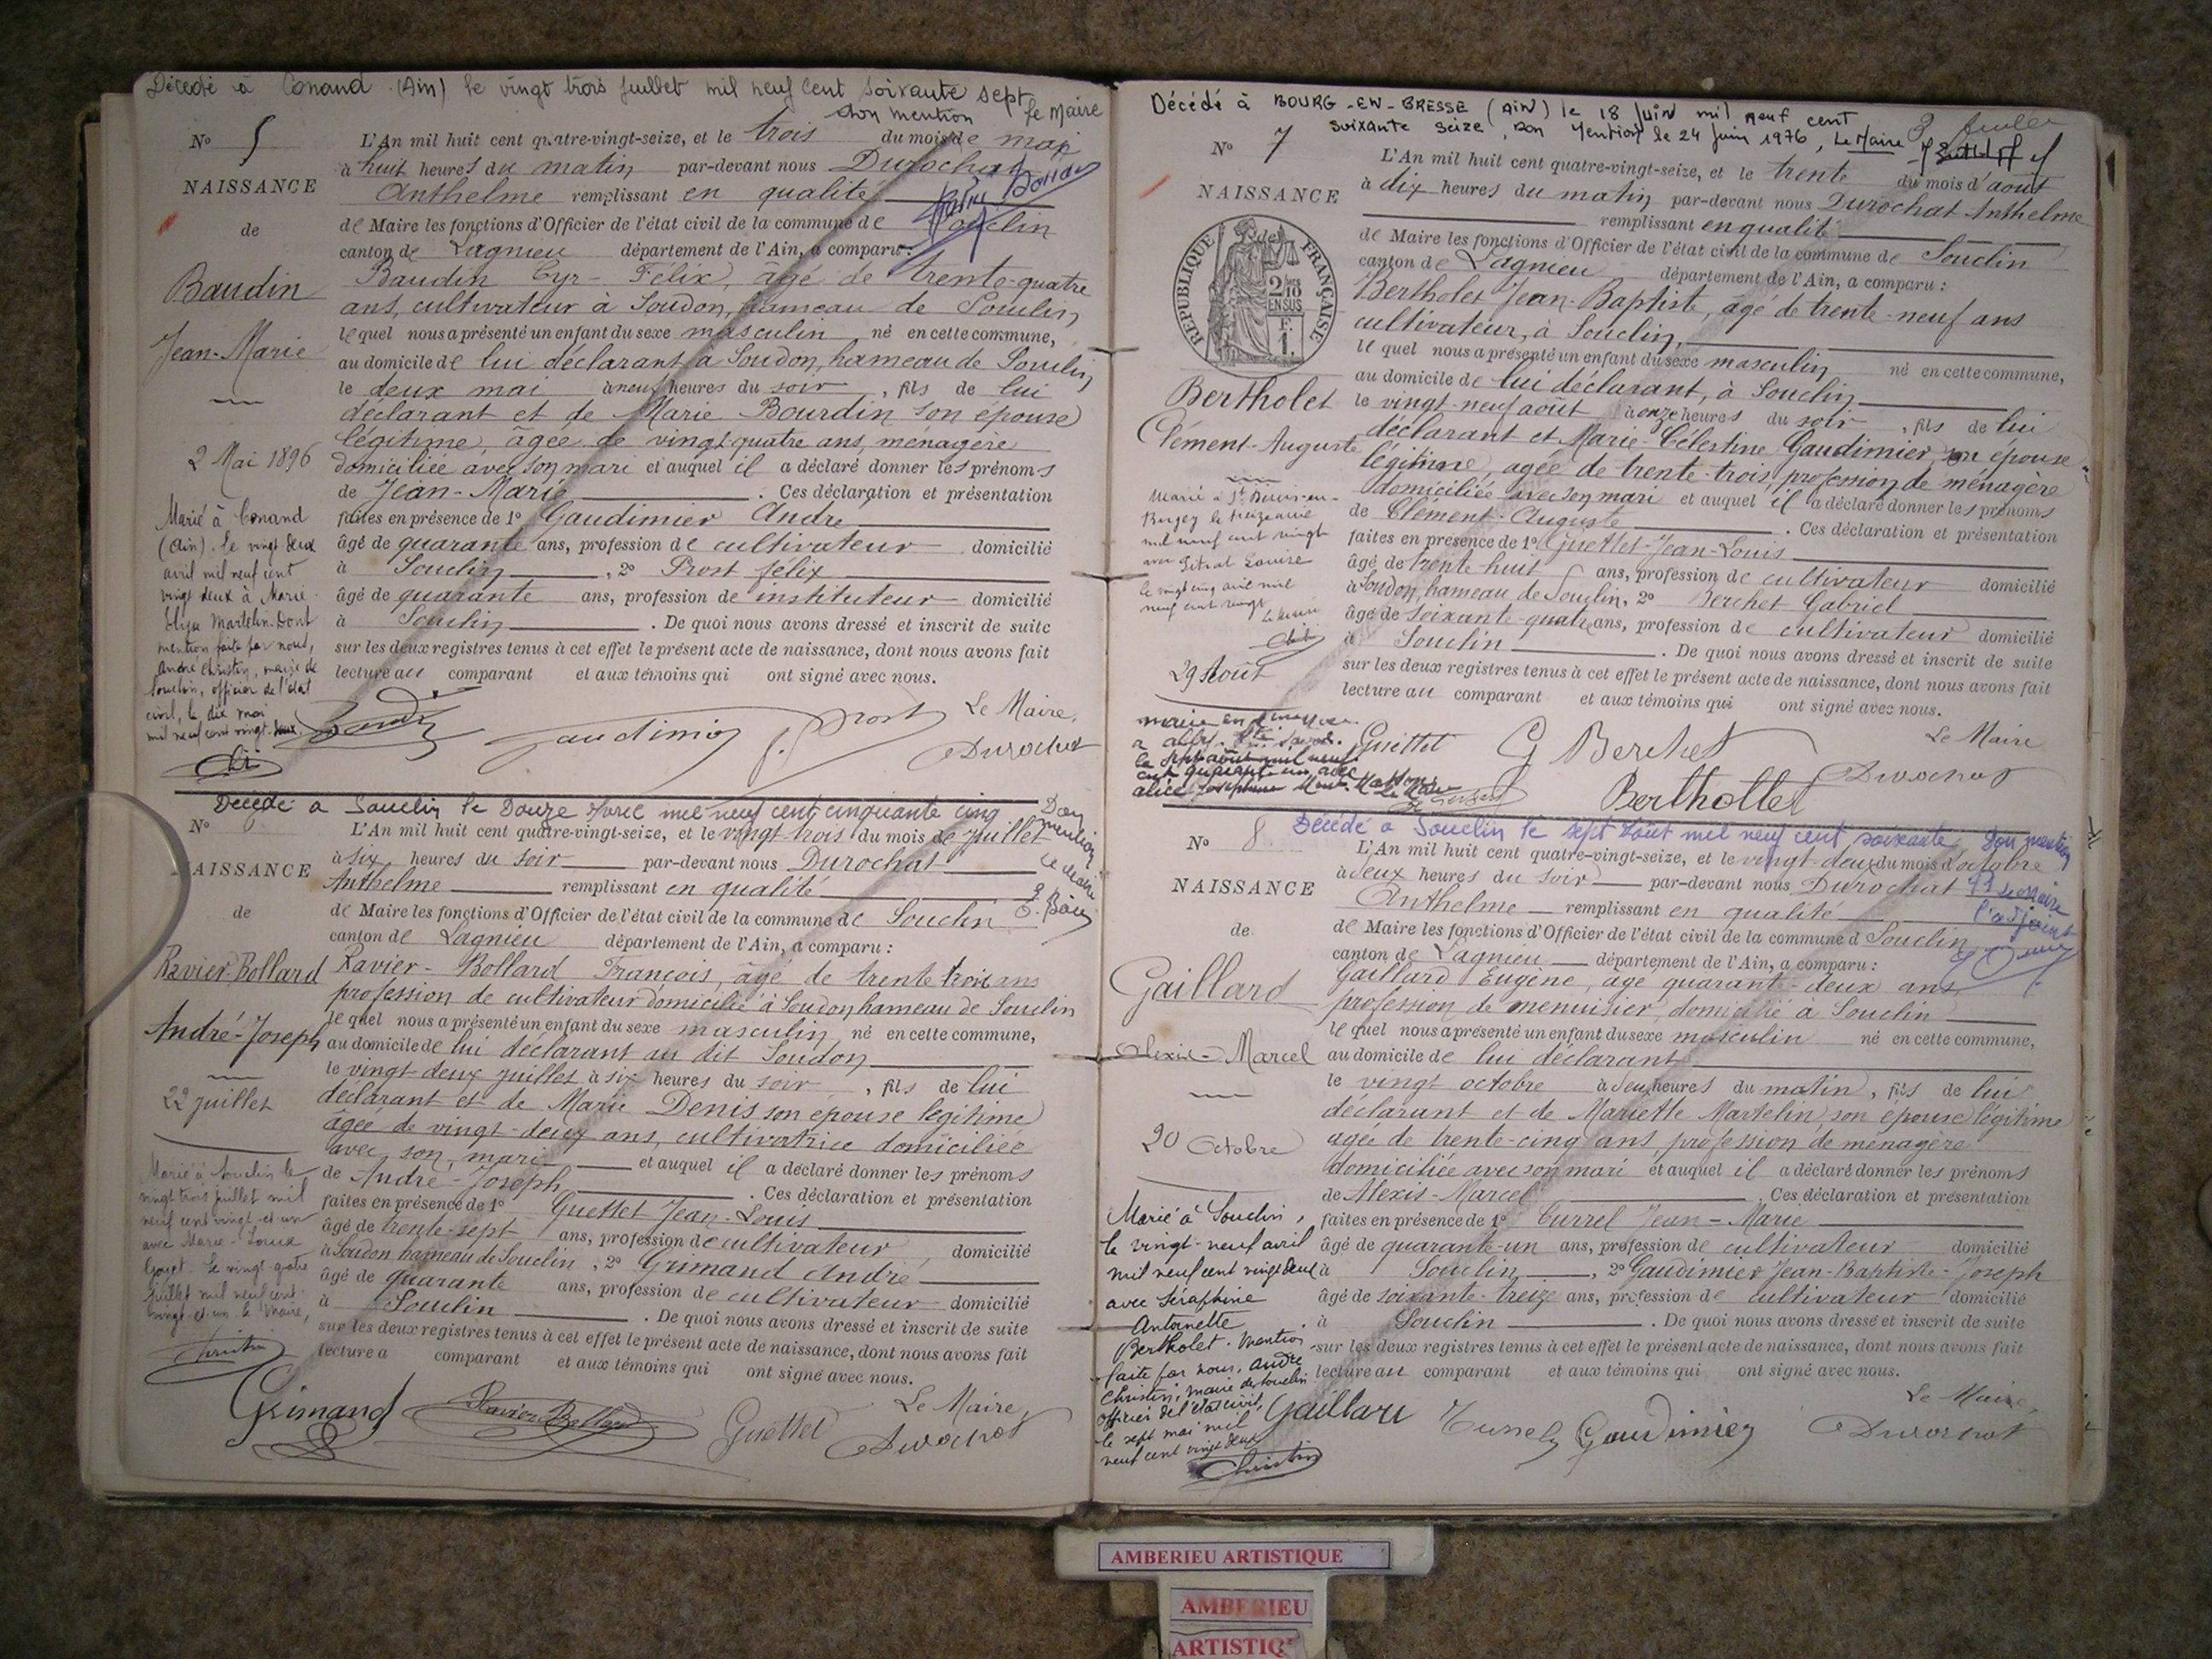 Décédé à Conand (Ain) le vingt trois juillet mil neuf cent soixante sept
don mention le Maire
No 5
NAISSANCE
de
Baudin
Jean-Marie
2 Mai 1896
Marié à Conand
(Ain). le vingt deux
avril mil neuf cent
vingt deux à Marie
Martelin. Dont
mention faite par nous,
André Christin, maire de
Souclin, officier de l'état
civil, le dix mai
mil neuf cent vingt deux.
L'An mil huit cent quatre-vingt-seize, et le trois du mois de mai
à huit heures du matin par-devant nous Durochat
Anthelme remplissant en qualité
de Maire les fonctions d'Officier de l'état civil de la commune de Souclin
canton de Lagnieu département de l'Ain, a comparu:
Baudin Cyr-Félix, âgé de trente-quatre
ans, cultivateur à Soudon, hameau de Souclin
lequel nous a présenté un enfant du sexe masculin né en cette commune,
au domicile de lui déclarant à Soudon, hameau de Souclin
le deux mai à neuf heures du soir, fils de lui
déclarant et de Marie Bourdin son épouse
légitime, âgée de vingt-quatre ans, ménagère
domiciliée avec son mari et auquel il a déclaré donner les prénoms
de Jean-Marie. Ces déclaration et présentation
faites en présence de 1° Gaudimier André
âgé de quarante ans, profession de cultivateur domicilié
à Souclin, 2° Prost félix
âgé de quarante ans, profession de instituteur domicilié
à Souclin. De quoi nous avons dressé et inscrit de suite
sur les deux registres tenus à cet effet le présent acte de naissance, dont nous avons fait
lecture au comparant et aux témoins qui ont signé avec nous.
Le Maire,
Gaudimier Prost Durochat
Décédé à Souclin le Douze Avril mil neuf cent cinquante cinq Don mention
Le Maire
No
NAISSANCE
de
Ravier-Bollard
André-Joseph
22 juillet
Marié à Souclin le
vingt trois juillet mil
neuf cent vingt et un
avec Marie-
le vingt quatre
juillet mil neuf cent
vingt et un le Maire,
Christin
L'An mil huit cent quatre-vingt-seize, et le vingt-trois du mois de juillet
à six heures du soir par-devant nous Durochat
Anthelme remplissant en qualité
de Maire les fonctions d'Officier de l'état civil de la commune de Souclin
canton de Lagnieu département de l'Ain, a comparu:
Ravier-Bollard François, âgé de trente trois ans
profession de cultivateur domicilié à Soudon hameau de Souclin
lequel nous a présenté un enfant du sexe masculin né en cette commune,
au domicile de lui déclarant au dit Soudon
le vingt-deux juillet à six heures du soir, fils de lui
déclarant et de Marie Denis son épouse légitime
âgée de vingt-deux ans, cultivatrice domiciliée
avec son mari et auquel il a déclaré donner les prénoms
de André-Joseph. Ces déclaration et présentation
faites en présence de 1° Guettet Jean-Louis
âgé de trente-sept ans, profession de cultivateur domicilié
à Soudon hameau de Souclin, 2° Grimand André
âgé de quarante ans, profession de cultivateur domicilié
à Souclin. De quoi nous avons dressé et inscrit de suite
sur les deux registres tenus à cet effet le présent acte de naissance, dont nous avons fait
lecture a comparant et aux témoins qui ont signé avec nous.
Le Maire,
Grimand Ravier Bollard Guettet Durochat
Décédé à BOURG-EN-BRESSE (AIN) le 18 Juin mil neuf cent
soixante seize, Don Mention le 24 Juin 1976, Le Maire
No 7
NAISSANCE
RÉPUBLIQUE FRANÇAISE
2/10 EN SUS
F. 1.
Bertholet
Clément-Auguste
29 Août
L'An mil huit cent quatre-vingt-seize, et le trente du mois d'août
à dix heures du matin par-devant nous Durochat Anthelme
remplissant en qualité
de Maire les fonctions d'Officier de l'état civil de la commune de Souclin
canton de Lagnieu département de l'Ain, a comparu:
Bertholet Jean-Baptiste, âgé de trente-neuf ans
cultivateur, à Souclin,
lequel nous a présenté un enfant du sexe masculin né en cette commune,
au domicile de lui déclarant, à Souclin
le vingt-neuf août à onze heures du soir, fils de lui
déclarant et Marie-Célestine Gaudimier, son épouse
légitime, agée de trente-trois, profession de ménagère
domiciliée avec son mari et auquel il a déclaré donner les prénoms
de Clément-Auguste. Ces déclaration et présentation
faites en présence de 1° Guettet-Jean-Louis
âgé de trente huit ans, profession de cultivateur domicilié
à Soudon, hameau de Souclin, 2° Berchet Gabriel
âgé de soixante-quatre ans, profession de cultivateur domicilié
à Souclin. De quoi nous avons dressé et inscrit de suite
sur les deux registres tenus à cet effet le présent acte de naissance, dont nous avons fait
lecture au comparant et aux témoins qui ont signé avec nous.
Le Maire
Guettet G Berchet Durochat
Berthollet
Décédé à Souclin le sept Août mil neuf cent soixante Don mention
l'adjoint
No 8
NAISSANCE
de
Gaillard
Alexis-Marcel
20 Octobre
Marié à Souclin,
le vingt-neuf avril
mil neuf cent vingt deux
avec Séraphine
Antoinette
Bertholet. mention
faite par nous, André
Christin, maire de Souclin
officier de l'état civil,
le sept mai mil
neuf cent vingt deux
Christin
L'An mil huit cent quatre-vingt-seize, et le vingt-deux du mois d'octobre
à deux heures du soir par-devant nous Durochat
Anthelme remplissant en qualité
de Maire les fonctions d'Officier de l'état civil de la commune d Souclin
canton de Lagnieu département de l'Ain, a comparu:
Gaillard Eugène, agé quarante-deux ans
profession de menuisier, domicilié à Souclin
lequel nous a présenté un enfant du sexe masculin né en cette commune,
au domicile de lui déclarant
le vingt octobre à deux heures du matin, fils de lui
déclarant et de Mariette Martelin, son épouse légitime
agée de trente-cinq ans, profession de ménagère
domiciliée avec son mari et auquel il a déclaré donner les prénoms
de Alexis-Marcel. Ces déclaration et présentation
faites en présence de 1° Turrel Jean-Marie
âgé de quarante-un ans, profession de cultivateur domicilié
à Souclin, 2° Gaudimier Jean-Baptiste-Joseph
âgé de soixante-treize ans, profession de cultivateur domicilié
à Souclin. De quoi nous avons dressé et inscrit de suite
sur les deux registres tenus à cet effet le présent acte de naissance, dont nous avons fait
lecture au comparant et aux témoins qui ont signé avec nous.
Le Maire,
Gaillard Turrel Gaudimier Durochat
AMBERIEU ARTISTIQUE
AMBERIEU
ARTISTIQ